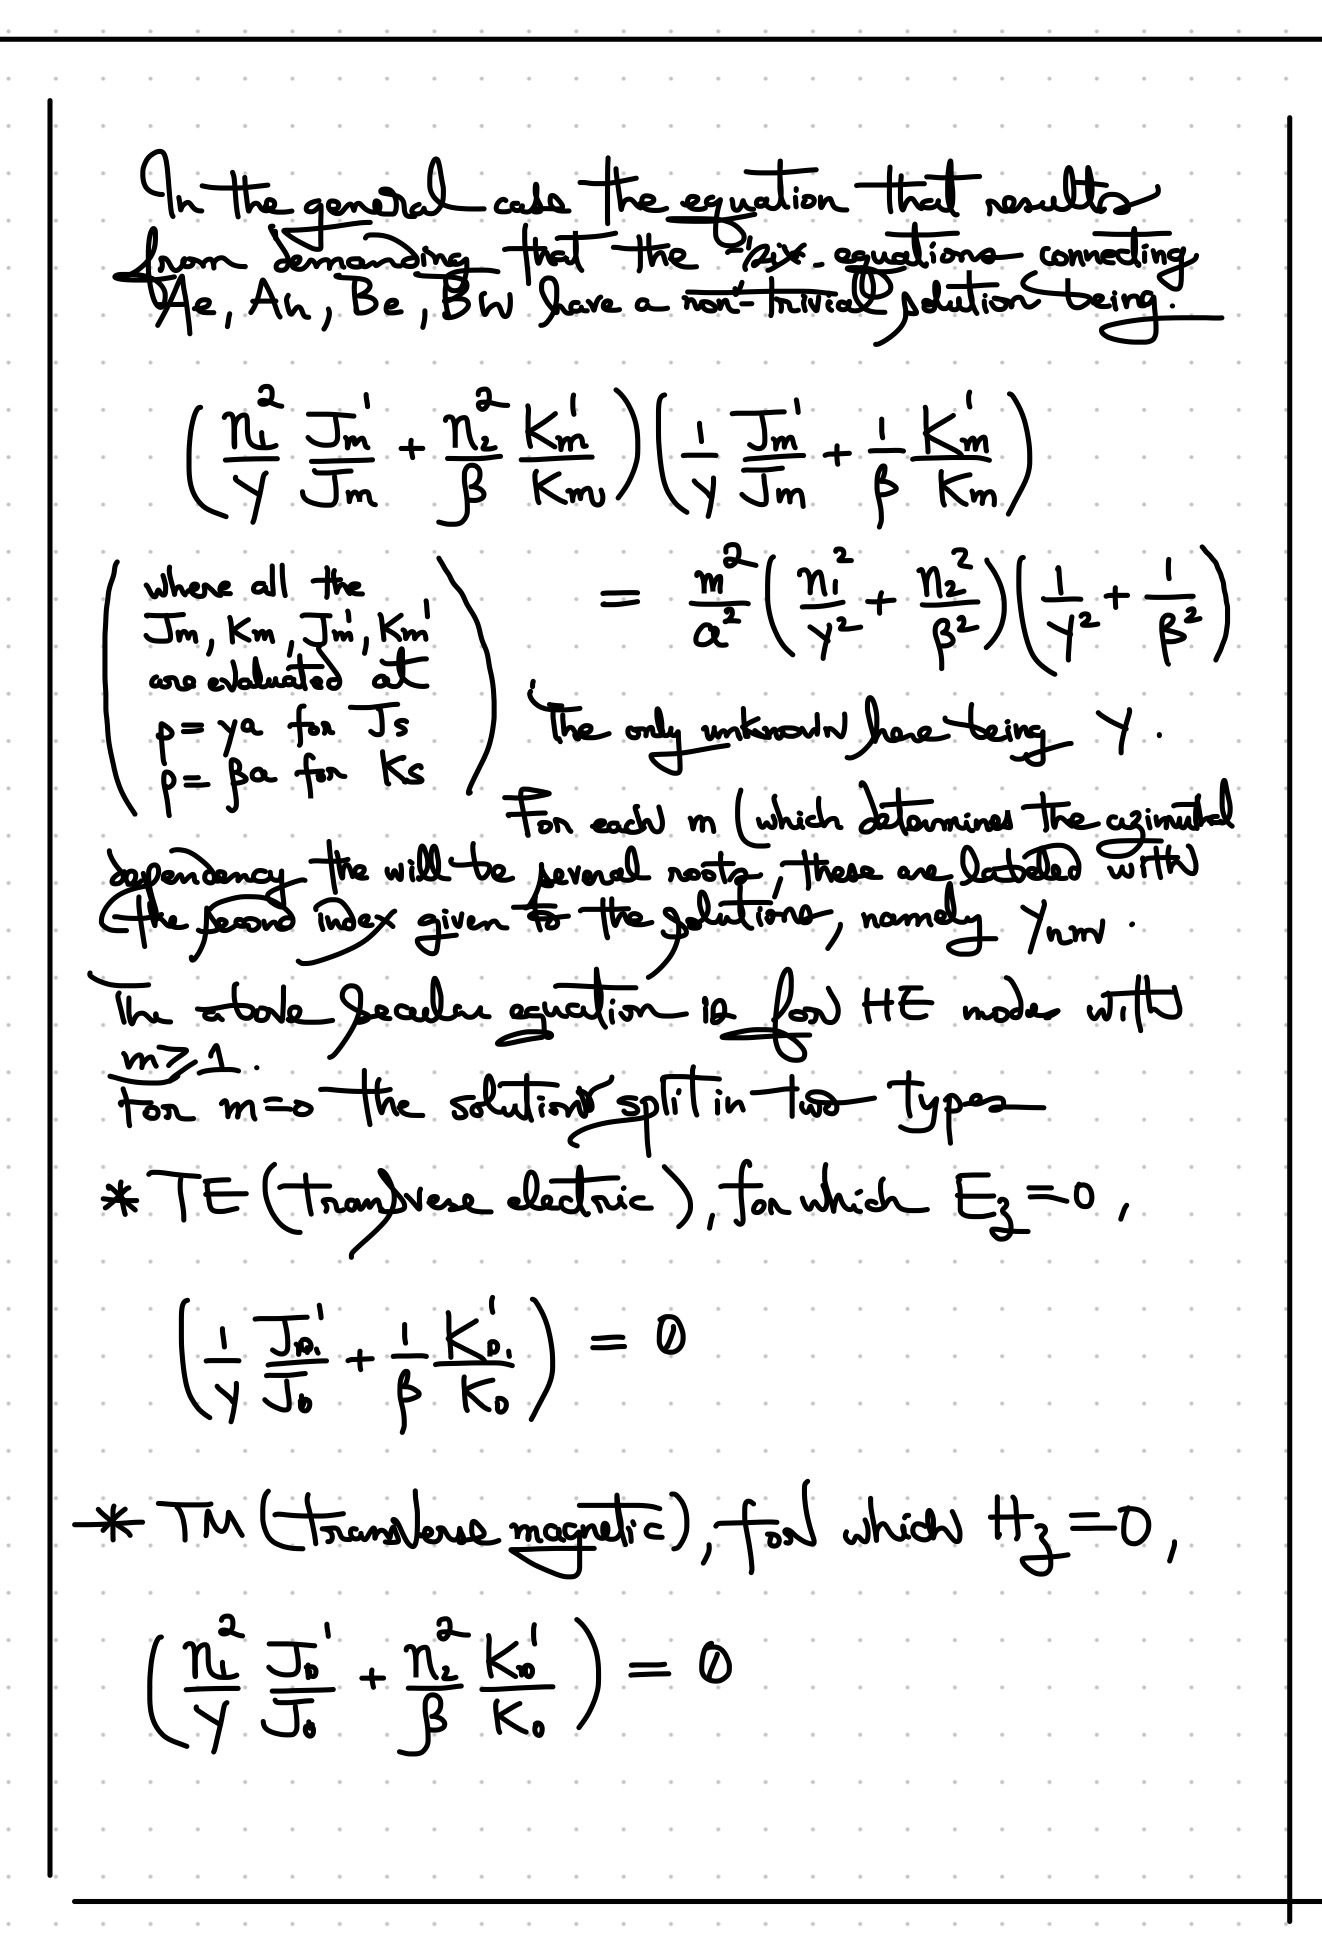 In the general case the equation that results
from demanding that the six equations connecting
Ae, Ah, Be, Bh have a non-trivial solution being.
(n₁²/γ Jm'/Jm + n₂²/β Km'/Km) (1/γ Jm'/Jm + 1/β Km'/Km)
= m²/a² (n₁²/γ² + n₂²/β²) (1/γ² + 1/β²)
(where all the
Jm, Km, Jm', Km'
are evaluated at
ρ = γa for Js
ρ = βa for Ks)
The only unknown here being γ.
For each m (which determines the azimuthal
dependency the will be several roots, these are labeled with
the second index given to the solutions, namely γnm.
The above secular equation is for HE modes with
m ≥ 1.
For m=0 the solutions split in two types
* TE (transverse electric), for which Ez = 0,
(1/γ J0'/J0 + 1/β K0'/K0) = 0
* TM (transverse magnetic), for which Hz = 0,
(n₁²/γ J0'/J0 + n₂²/β K0'/K0) = 0